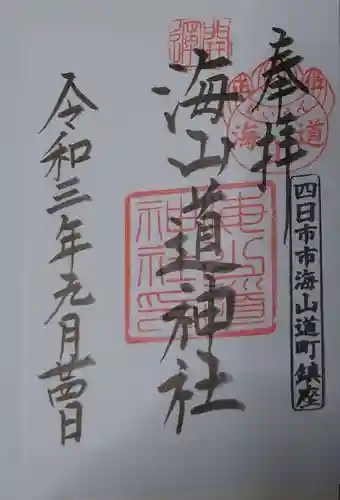 奉拝
四日市市海山道町鎮座
開運
海山道神社
海山道神社印
令和三年九月廿四日